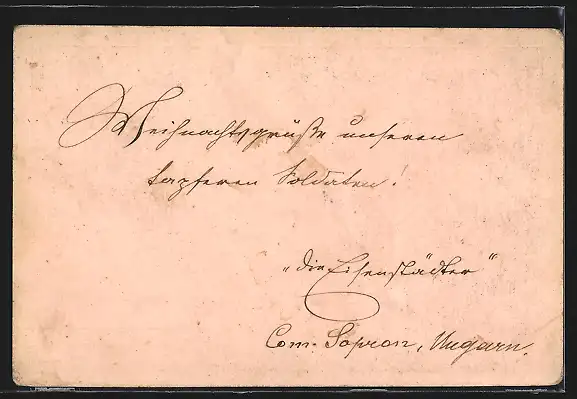 Weihnachtsgrüße unseren
tapferen Soldaten!
„die Eisenstädter“
Com. Sopron, Ungarn.